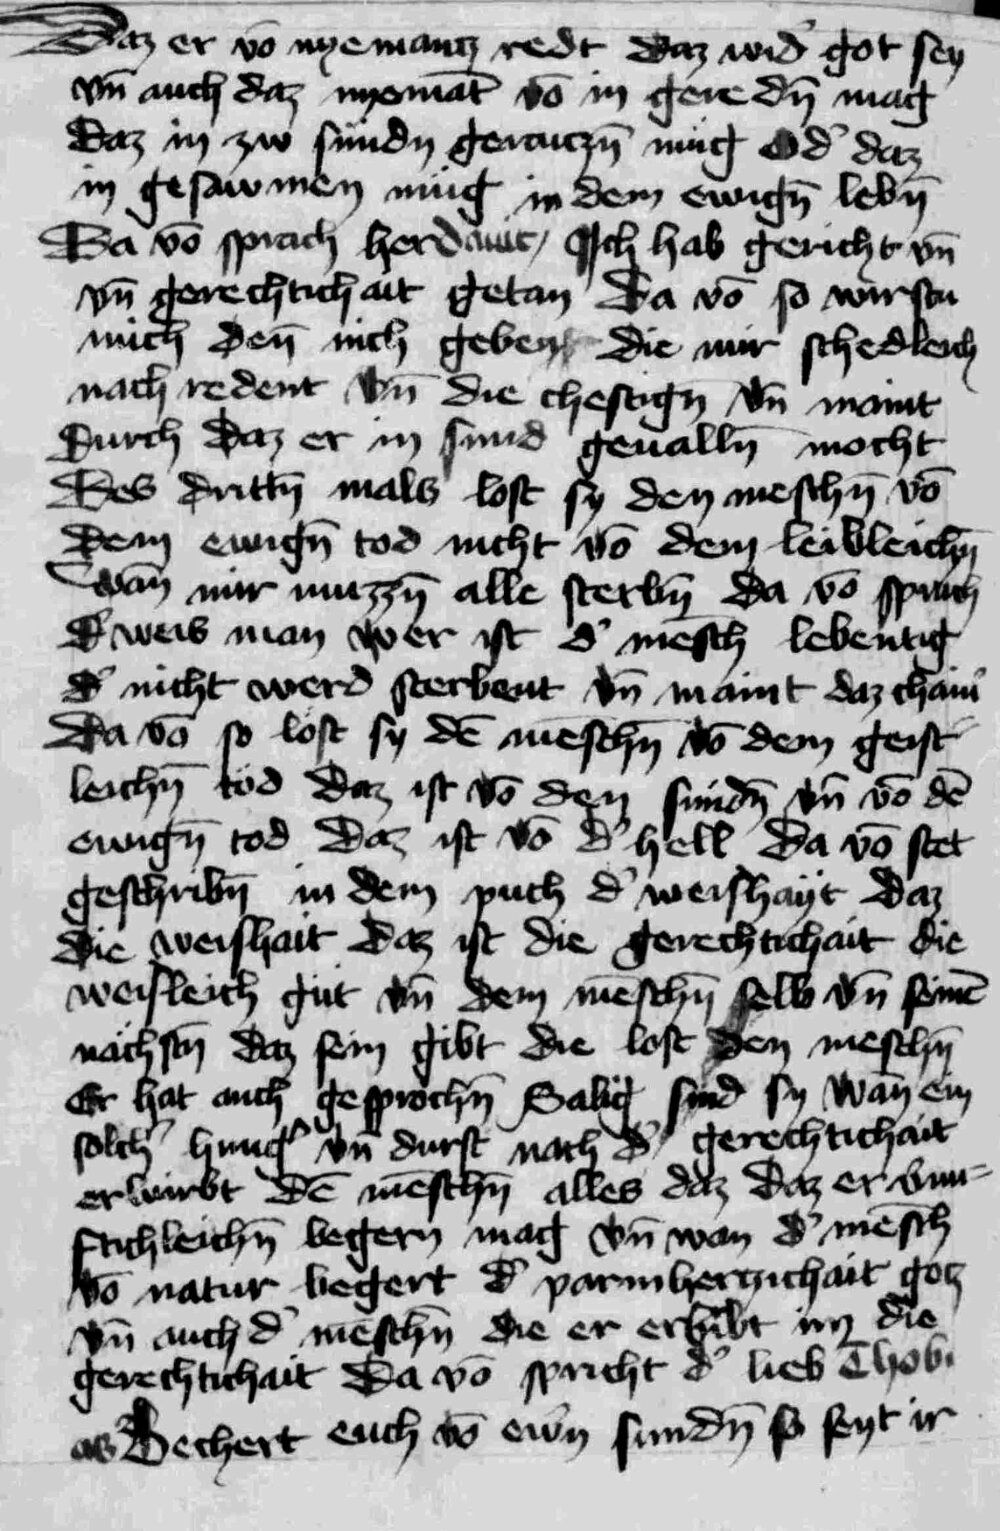 Daz er vō nyemantz redt daz wid' got sey
vn̄ auch daz nyemāt vō in geredn̄ mag
daz in zw sündn geraiczn̄ müg Od' daz
in gesawmen müg in dem ewign̄ lebn̄
Da vō sprach her Dauit / Ich hab gericht vn̄
vn̄ gerechtichait getan Da vō so wirstu
mich den̄ nich geben die mir schedleich
nach redent Vn̄ die chestign̄ Vn̄ maint
Durch daz er in sund geualln̄ mocht
Des drittn̄ mals lost sy den meschn̄ vō
dem ewign̄ tod nicht vō dem leibleichn̄
wan̄ mir muzzn̄ alle sterbn̄ Da vō sprach
d' weis man wer ist d' mēsch lebentig
d' nicht werd sterbent Vn̄ maint daz chain'
Da vō so löst sy dē mēschn̄ vō dem geist
leichn̄ töd daz ist vō den sündn̄ vn̄ vō dē
ewign̄ tod daz ist vō d' hell Da vō stet
geschribn̄ in dem puch d' weishayt daz
die weishait daz ist die gerechtichait die
weisleich güt vn̄ dem mēschn̄ selb vn̄ seinē
nächstn̄ daz sein gibt die lost den meschn̄
Er hat auch gesprochn̄ Salig sind sy wan̄ ein
solch' hung' vn̄ durst nach d' gerechtichait
erwirbt dē mēschn̄ alles daz daz er vnu=
ftichleichn̄ begern mag vn̄ wan d' mēsch
vō natur begert d' parmherczichait gotz
vn̄ auch d' mēschn̄ die er erbibt im die
gerechtichait Da vō spricht d' lieb Thobi
as Bechert euch vō ewn̄ sundn̄ so seyt ir